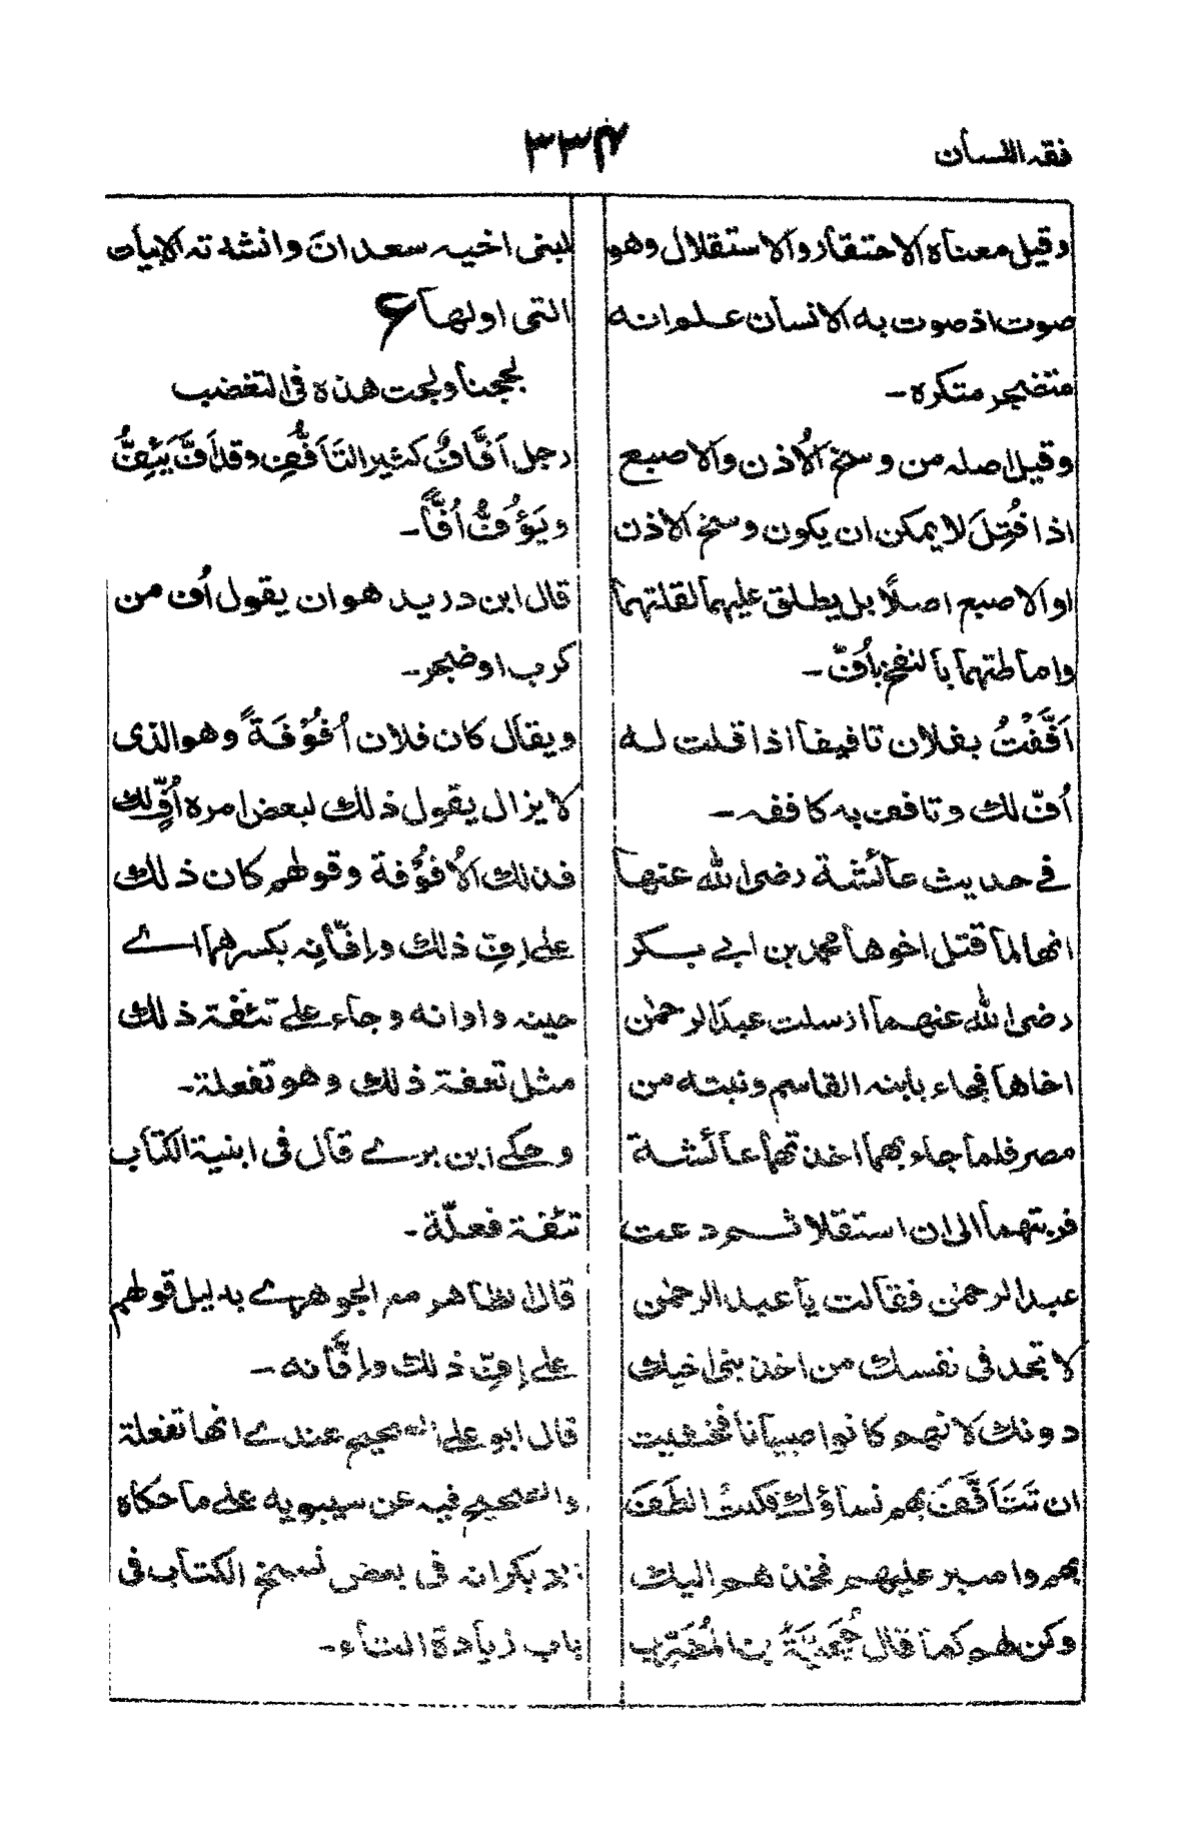 فقه اللسان
٣٣٤
وقيل معناه الاحتقار والاستقلال وهو
صوت اذ صوت به الانسان علم انه
متضجر متكره -
وقيل اصله من وسخ الُاذن والاصبع
اذا فُتِلَ لا يمكن ان يكون وسخ الاذن
او الاصبع اصلاً بل يطلق عليهما لقلتهما
واماطتهما بالنفخ باُفّ -
اَفَّفْتُ بفلان تافيفا اذا قلت له
اُفّ لك وتافف به كاففه -
فے حديث عائشة رضى الله عنها
انها لما قتل اخوها محمد بن ابے بكر
رضى الله عنهما ارسلت عبد الرحمٰن
اخاها فجاء بابنه القاسم وبنته من
مصر فلما جاء بهما اخذتهما عائشة
فربتهما الى ان استقلا ثم دعت
عبد الرحمٰن فقالت يا عبد الرحمٰن
لا تجد فى نفسك من اخذ بنى اخيك
دونك لانهم كانوا صبيانا فخشيت
ان تَتَاَفَّفَ بهم نساؤك فكنتُ الطَفَ
بهم واصبر عليهم فخذهم اليك
وكن لهم كما قال حُجَيَّةُ بن المُضَرِّب
لبنى اخيه سعدان وانشدته الابيات
التى اولها ؏
لججنا ولجت هذه فى التغضب
رجل اَفَّافٌ كثير التَاَفُّفِ وقد اَفَّ يَئِفُّ
ويَؤُفُّ اُفًّا -
قال ابن دريد هو ان يقول اُف من
كرب او ضجر -
ويقال كان فلان اُفُوْفَةً وهو الذى
لا يزال يقول ذلك لبعض امره اُفٍّ لك
فذلك الاُفُوْفة وقولهم كان ذلك
علے اِفِّ ذلك واِفَّانِه بكسرهما اے
حينه واوانه وجاء علے تئفة ذلك
مثل تعفة ذلك وهو تفعلة -
وحكے ابن برے قال فى ابنية الكتاب
تئفة فعلّة -
قال الظاهر مع الجوهرے بدليل قولهم
علے اِفِّ ذلك واِفَّانه -
قال ابو علے الصحيح عندے انها تفعلة
والصحيح فيه عن سيبويه علے ما حكاه
ابو بكر انه فى بعض نسخ الكتاب فى
باب زيادة التاء -